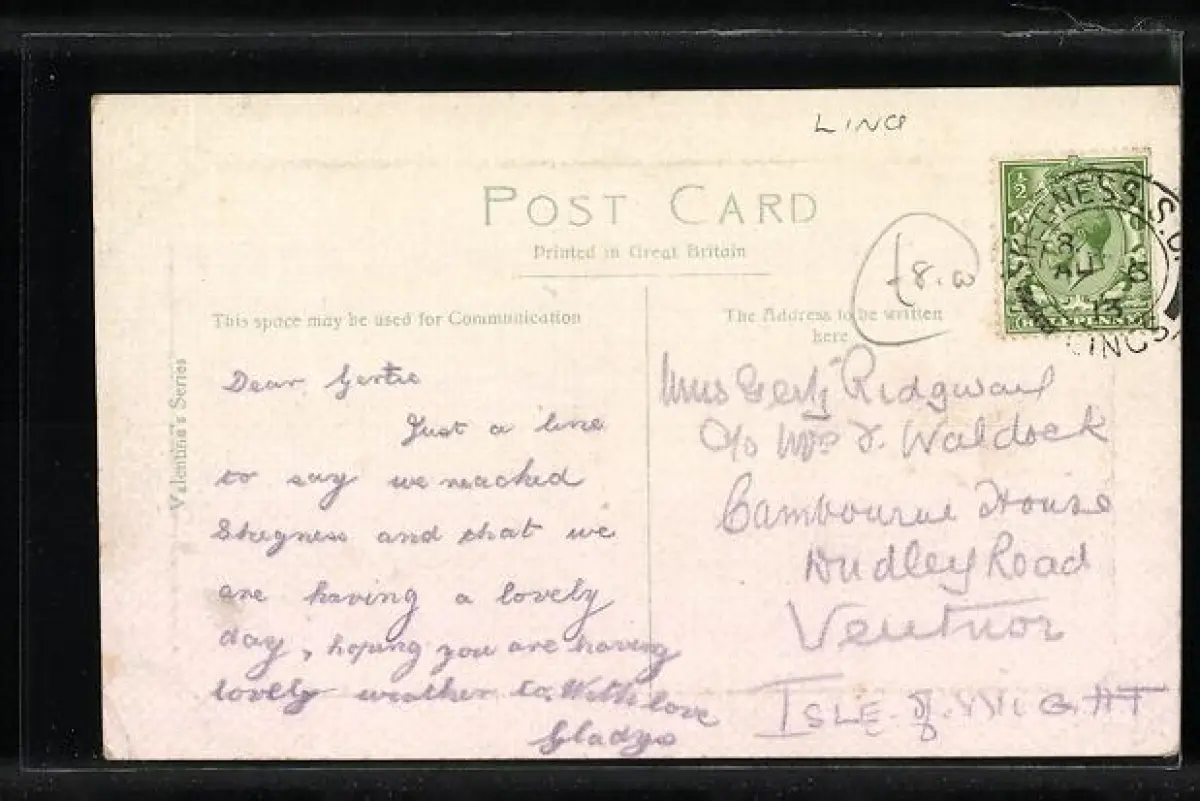 LINC
POST CARD
Printed in Great Britain
£8.00
This space may be used for Communication
The Address to be written
here
Valentine's Series
½
HALFPENNY
SKEGNESS. S.O.
AU 6
13
LINCS
Dear Gertie
Just a line
to say we reached
Skegness and that we
are having a lovely
day, hoping you are having
lovely weather to. With love
Gladys
Miss Ridgway
c/o Mrs Waldock
Cambourne House
Dudley Road
Ventnor
ISLE of WIGHT